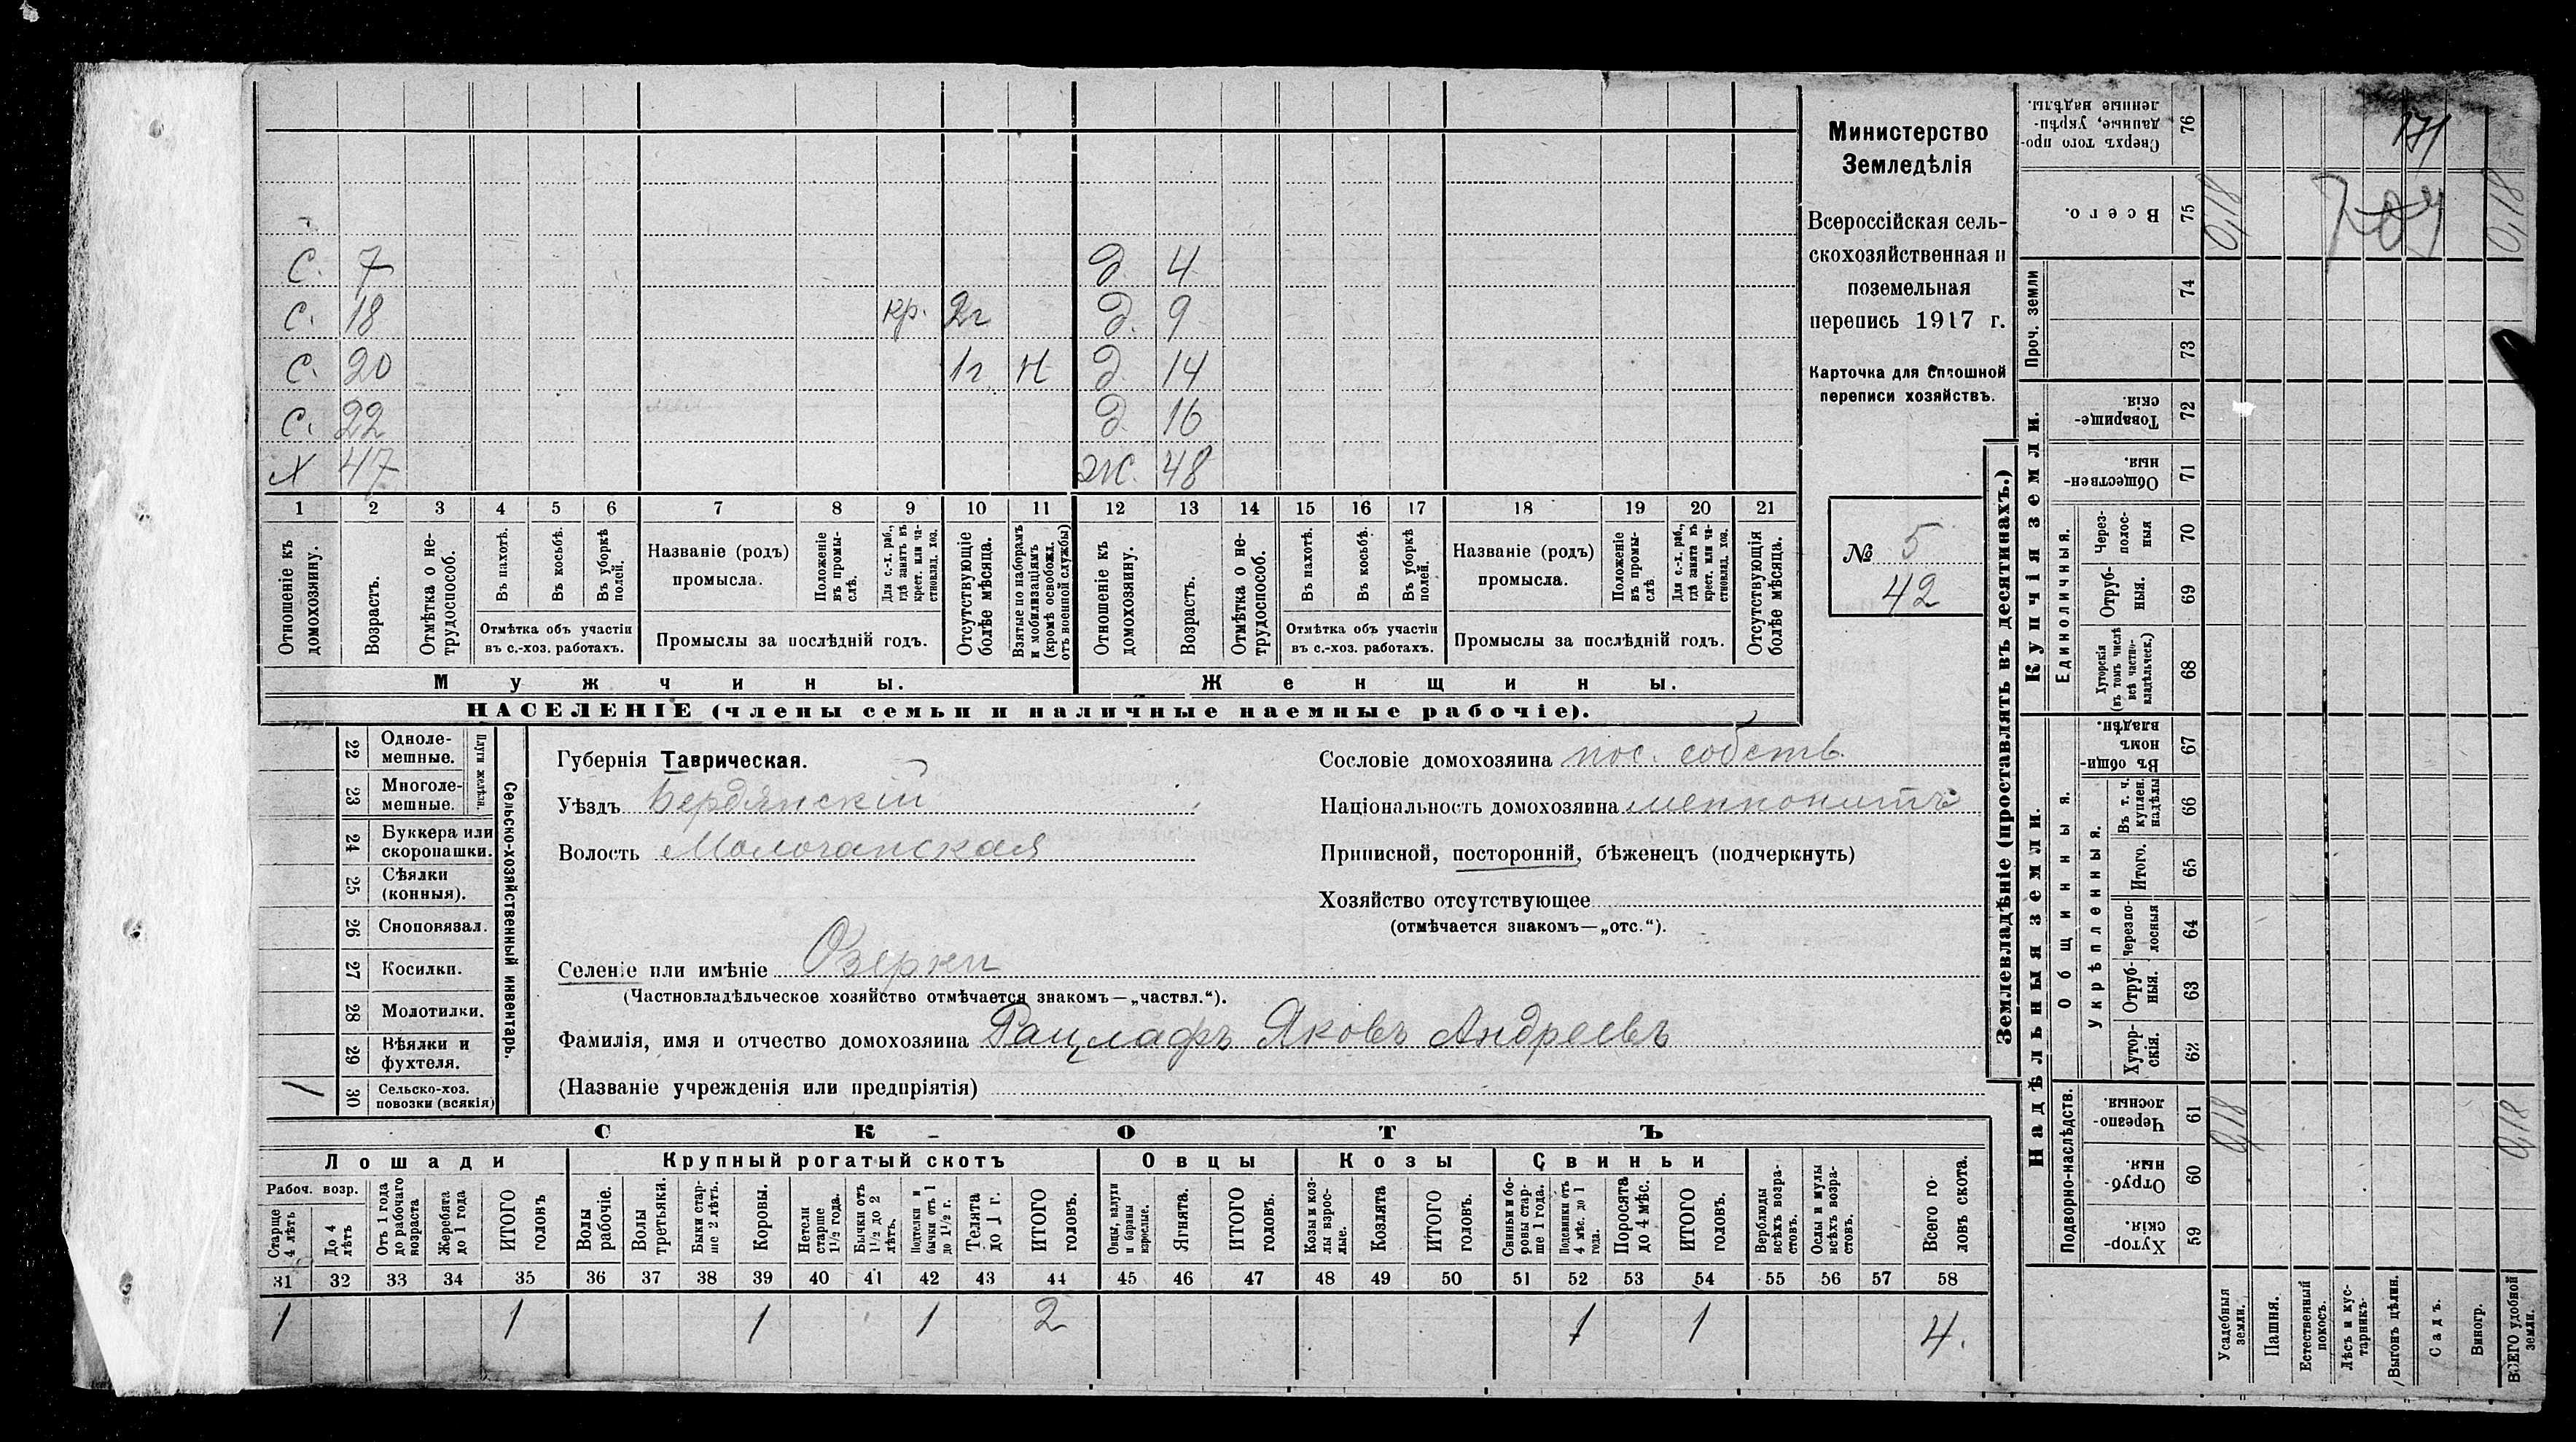 С. 7 д. 4
С. 18 кр. 2г д. 9
С. 20 1г Н д. 14
С. 22 д. 16
Х 47 Ж. 48
1 2 3 4 5 6 7 8 9 10 11 12 13 14 15 16 17 18 19 20 21
Отношеніе къ домохозяину.
Возрастъ.
Отмѣтка о не-трудоспособ.
Въ пахотѣ.
Въ косьбѣ.
Въ уборкѣ полей.
Отмѣтка объ участіи въ с.-хоз. работахъ.
Названіе (родъ) промысла.
Положеніе въ промы-слѣ.
Для с.-х. раб., гдѣ занятъ въ крест. или ча-стновлад. хоз.
Промыслы за послѣдній годъ.
Отсутствующіе болѣе мѣсяца.
Взятые по наборамъ и мобилизаціямъ (кромѣ освобожд. отъ военной службы)
Отношеніе къ домохозяину.
Возрастъ.
Отмѣтка о не-трудоспособ.
Въ пахотѣ.
Въ косьбѣ.
Въ уборкѣ полей.
Отмѣтка объ участіи въ с.-хоз. работахъ.
Названіе (родъ) промысла.
Положеніе въ промы-слѣ
Для с.-х. раб., гдѣ занята въ крест. или ча-стновлад. хоз.
Промыслы за послѣдній годъ.
Отсутствующія болѣе мѣсяца.
Мужчины. Женщины.
НАСЕЛЕНІЕ (члены семьи и наличные наемные рабочіе).
Министерство
Земледѣлія
Всероссійская сель-
скохозяйственная и
поземельная
перепись 1917 г.
Карточка для сплошной
переписи хозяйствъ.
№ 5
42
22 Одноле-мешные.
23 Многоле-мешные.
Плуги желѣзн.
24 Буккера или скоропашки.
25 Сѣялки (конныя).
26 Сноповязал.
27 Косилки.
28 Молотилки.
29 Вѣялки и фухтеля.
1 30 Сельско-хоз. повозки (всякія)
Сельско-хозяйственный инвентарь.
Губернія Таврическая.
Уѣздъ Бердянскій
Волость Молочанская
Селеніе или имѣніе Озерки
(Частновладѣльческое хозяйство отмѣчается знакомъ—„частвл.“).
Фамилія, имя и отчество домохозяина Рацлафъ Яковъ Андреевъ
(Названіе учрежденія или предпріятія)
Сословіе домохозяина пос. собств.
Національность домохозяина меннонитъ
Приписной, посторонній, бѣженецъ (подчеркнуть)
Хозяйство отсутствующее
(отмѣчается знакомъ—„отс.“).
СКОТЪ
Лошади Крупный рогатый скотъ Овцы Козы Свиньи
Рабоч. возр.
Старше 4 лѣтъ
До 4 лѣтъ
Отъ 1 года до рабочаго возраста
Жеребята до 1 года
ИТОГО головъ
Волы рабочіе.
Волы третьяки.
Быки стар-ше 2 лѣтъ.
Коровы.
Нетели старше 1½ года.
Бычки отъ 1½ до 2 лѣтъ.
Подтелки и бычки отъ 1 до 1½ г.
Телята до 1 г.
ИТОГО головъ.
Овцы, валухи и бараны взрослые.
Ягнята.
ИТОГО головъ.
Козы и коз-лы взрос-лые.
Козлята
ИТОГО головъ.
Свиньи и бо-ровы стар-ше 1 года.
Подсвинки отъ 4 мѣс. до 1 года.
Поросята до 4 мѣс.
ИТОГО головъ.
Верблюды всѣхъ возра-стовъ.
Ослы и мулы всѣхъ возра-стовъ.
Всего го-ловъ скота.
31 32 33 34 35 36 37 38 39 40 41 42 43 44 45 46 47 48 49 50 51 52 53 54 55 56 57 58
1 1 1 1 2 1 1 4.
Землевладѣніе (проставлять въ десятинахъ.)
Надѣльныя земли. Купчія земли. Проч. земли
Подворно-наслѣдств.
Общинныя.
Укрѣпленныя.
Единоличныя.
Сверхъ того про-данные, укрѣп-ленные надѣлы. 76
Всего. 75 0,18 0,18
74
73
Товарище-скія. 72
Обществен-ныя. 71
Через-полос-ныя 70
Отруб-ныя. 69
Хуторскія (въ томъ числѣ всѣ частно-владѣльческ.) 68
Въ общин-номъ владѣн. 67
Въ т. ч. куплен. надѣлы 66
Итого. 65
Черезпо-лосныя 64
Отруб-ныя. 63
Хутор-скія. 62
Черезпо-лосныя. 61 0,18 0,18
Отруб-ныя. 60
Хутор-скія. 59
Усадебныя земли.
Пашня.
Естественный покосъ.
Лѣсъ и кус-тарникъ.
Выгонъ цѣлин.
Садъ.
Виногр.
ВСЕГО удобной земли.
171
704